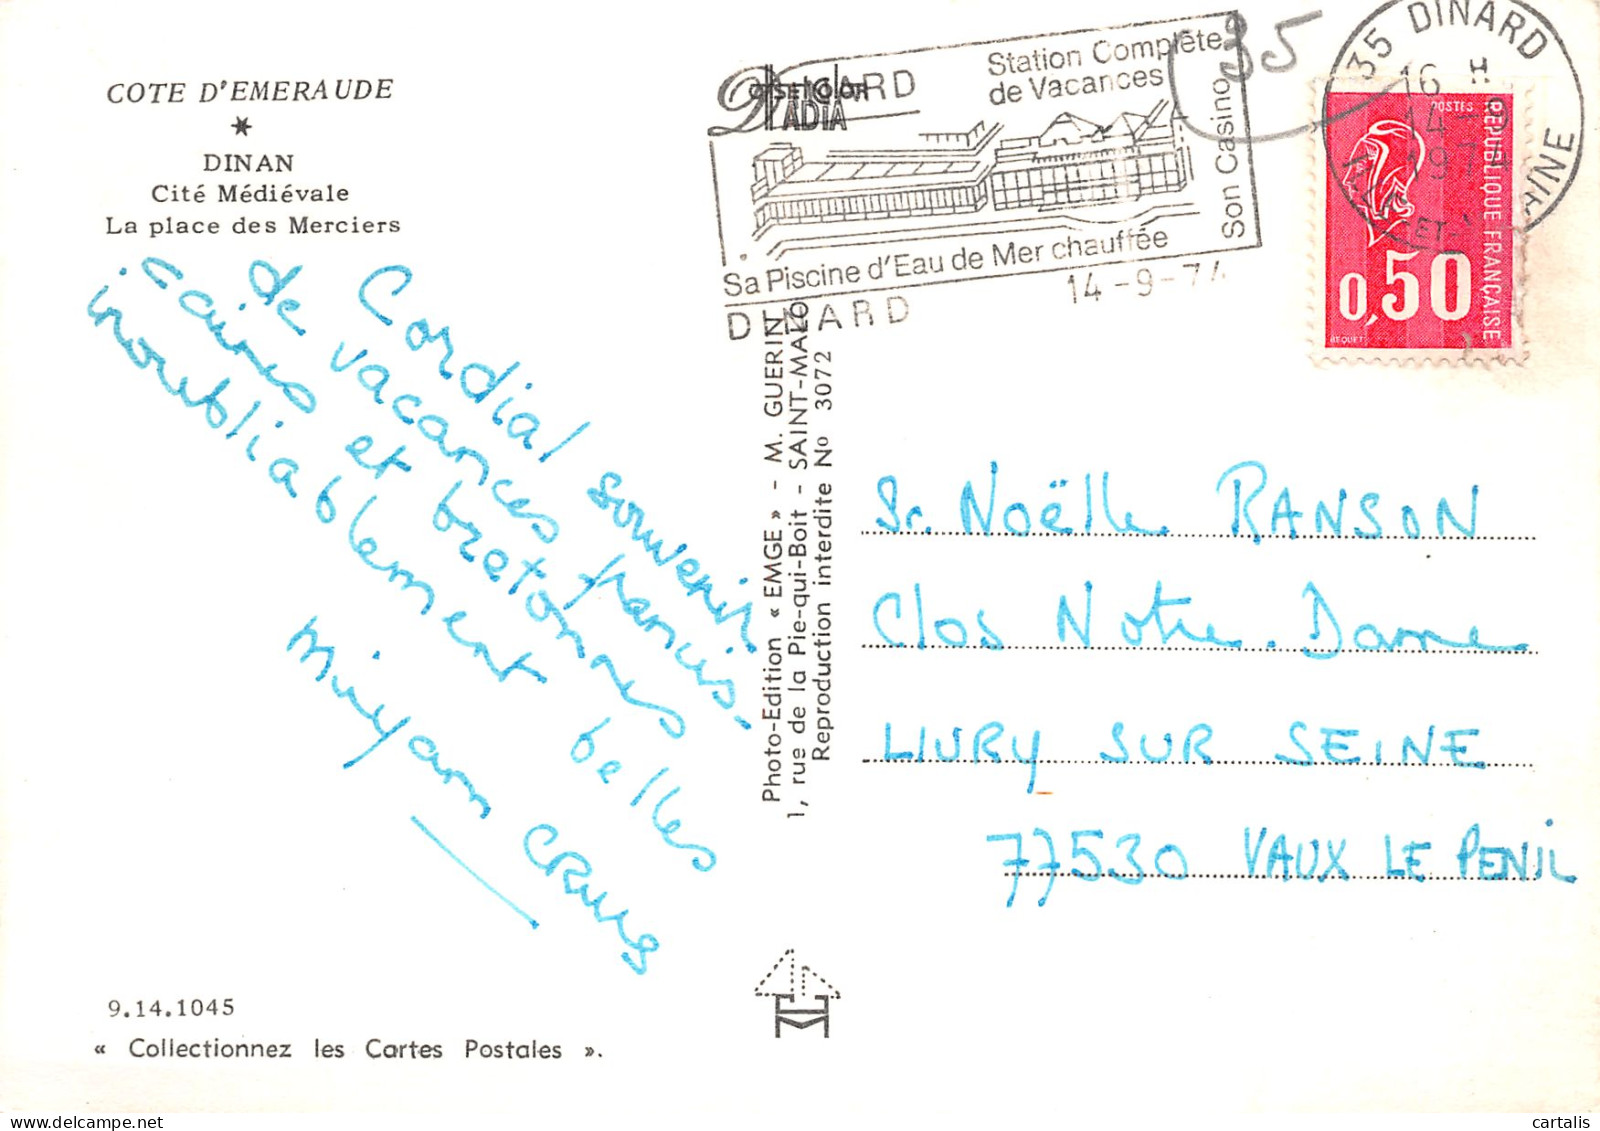 COTE D'EMERAUDE
DINAN
Cité Médiévale
La place des Merciers
Cordial souvenir
de vacances françaises
et bretonnes
inoubliablement belles
Miryam
9.14.1045
« Collectionnez les Cartes Postales ».
Photo-Edition « EMGE » - M. GUERIN
1, rue de la Pie-qui-Boit - SAINT-MALO
Reproduction interdite No 3072
DINARD
Station Complète
de Vacances
Son Casino
Sa Piscine d'Eau de Mer chauffée
DINARD
14-9-74
35
35 DINARD
16 H
14-9
1974
ILLE-ET-VILAINE
POSTES
REPUBLIQUE FRANÇAISE
0,50
BEQUET
Sr. Noëlle RANSON
Clos Notre-Dame
LIVRY SUR SEINE
77530 VAUX LE PENIL